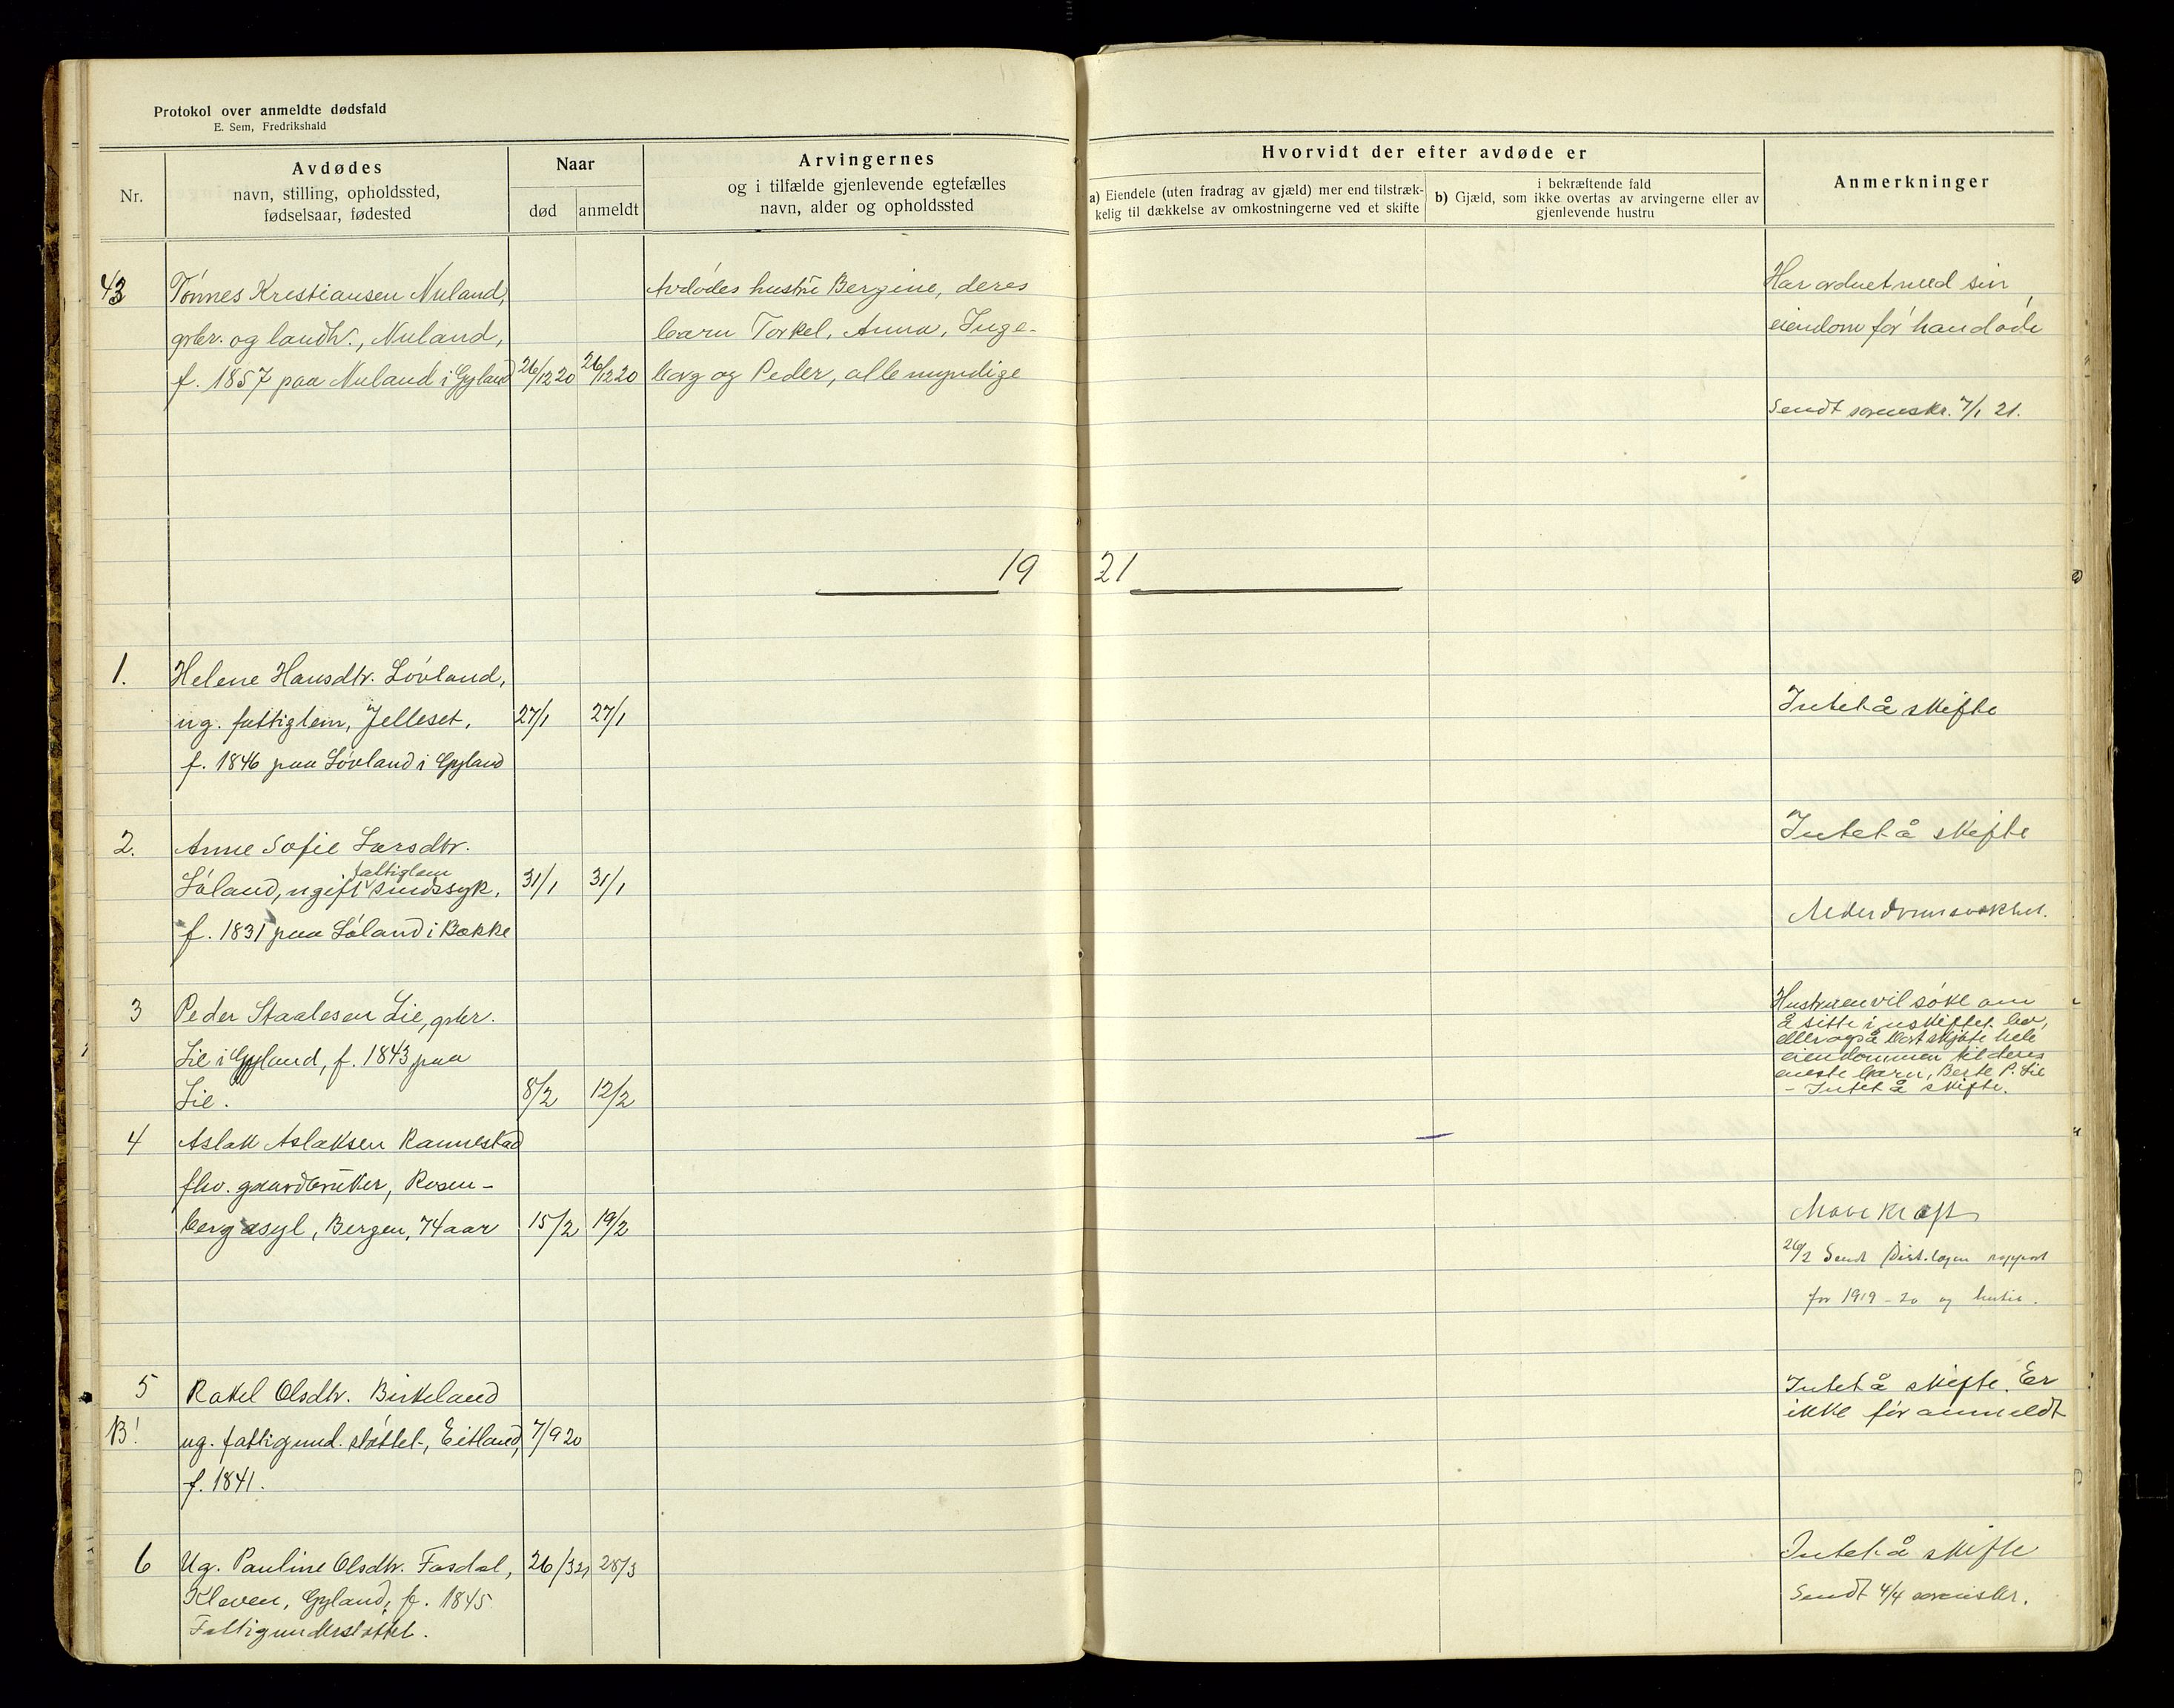 Protokol over anmeldte dødsfald
E. Sem, Fredrikshald
Nr.
Avdødes
navn, stilling, opholdssted,
fødselsaar, fødested
Naar
død
anmeldt
Arvingernes
og i tilfælde gjenlevende egtefælles
navn, alder og opholdssted
Hvorvidt der efter avdøde er
a) Eiendele (uten fradrag av gjæld) mer end tilstræk-
kelig til dækkelse av omkostningerne ved et skifte
i bekræftende fald
b) Gjæld, som ikke overtas av arvingerne eller av
gjenlevende hustru
Anmerkninger
43
Tønnes Krestiansen Nuland,
gbr. og landh., Nuland,
f. 1857 paa Nuland i Gyland
26/12 20
26/12 20
Avdødes hustru Bergine, deres
barn Torkel, Anna, Inge-
borg og Peder, alle myndige
Har ordnet med sin
eiendom før han døde
Sendt sorenskr. 7/1 21.
19 21
1.
Helene Hansdtr. Løvland,
ug. fattiglem, Jelleset,
f. 1846 paa Løvland i Gyland
27/1
27/1
Intet å skifte
2.
Anne Sofie Larsdtr.
fattiglem
Løland, ugift sindssyk,
f. 1831 paa Løland i Bakke
31/1
31/1
Intet å skifte
Alderdomssvakhet.
3
Peder Staalesen Lie, gbr.
Lie i Gyland, f. 1843 paa
Lie.
8/2
12/2
Hustruen vil søke om
å sitte i uskiftet bo,
eller også skjøte hele
eiendommen til deres
eneste barn, Berte P. Lie
- Intet å skifte.
4
Aslak Aslaksen Rannestad
fhv. gaardbruker, Rosen-
berg asyl, Bergen, 74 aar
15/2
19/2
Mavekræft
26/2 Sendt Dist.lægen rapport
for 1919-20 og
5
B!
Rakel Olsdtr. Birkeland
ug. fattigund. støttet, Eitland,
f. 1841.
7/9 20
Intet å skifte. Er
ikke før anmeldt
6
Ug. Pauline Olsdtr. Fasdal,
Klaven, Gyland, f. 1845
Fattigunderstøttet.
26/3 21
28/3
Intet å skifte
Sendt 4/4 sorenskr.